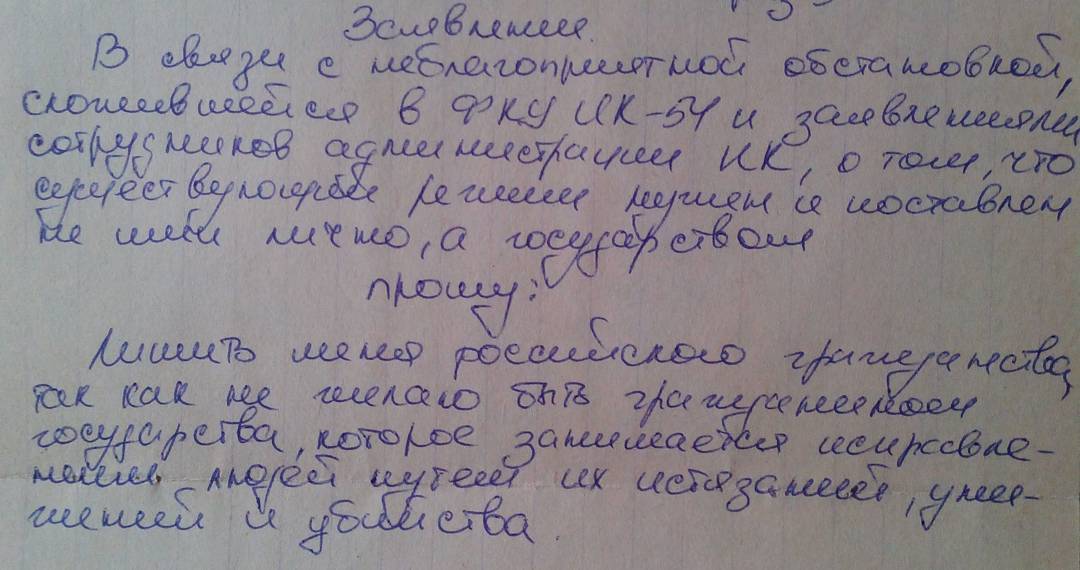 Заявление.
В связи с неблагоприятной обстановкой,
сложившейся в ФКУ ИК-54 и заявлениями
сотрудников администрации ИК, о том, что
существующий режим нужен и поставлен
не ими лично, а государством
прошу:
Лишить меня российского гражданства,
так как не желаю быть гражданином
государства, которое занимается исправле-
нием людей путем их истязаний, уни-
жений и убийства.